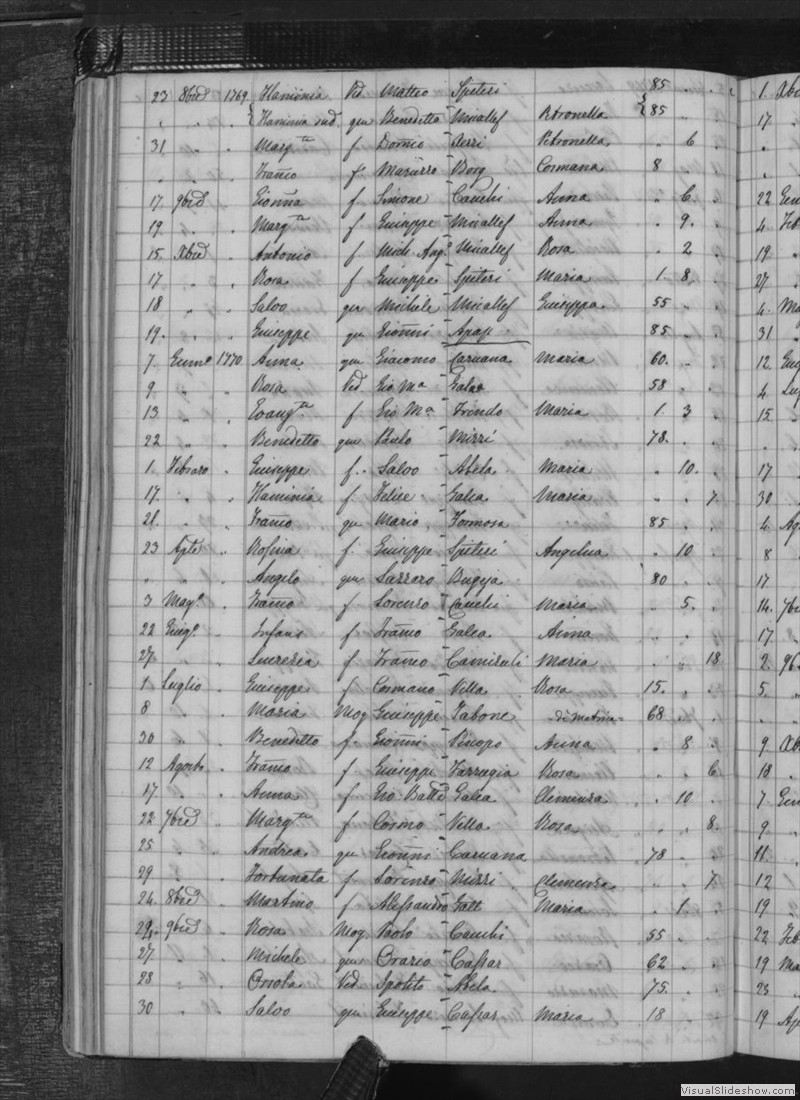 23 8bre 1769 Flaminia Vid Matteo Speteri 85 . .
" " " Flaminia sud. qm Benedetto Micallef Petronella 85 "
31 " " Margta f Domco Petronella " 6 "
" " " Franco f Borg Cosmana 8 " "
17 9bre " Gionna f Simone Cauchi Anna " 6 "
19 " " Margta f Giuseppe Micallef Anna " 9 "
15 Xbre " Antonio f Micallef Rosa " 2 "
17 " " Rosa f Giuseppe Speteri Maria 1 8 "
18 " " Salvo qm Michele Micallef Giuseppa 55 " "
19 " " Giuseppe qm Gionni Apap 85 " "
7 1770 Anna qm Giacomo Caruana Maria 60 " "
9 " " Rosa Vid Gio Ma Galea 58 " "
13 " " Evangta f Gio Ma Maria 1 3 "
22 " " Benedetto qm Paulo Mizzi 78 " "
1 Febraro " Giuseppe f Salvo Abela Maria " 10 "
17 " " Flaminia f Felice Galea Maria " " 7
21 " " Franco qm Mario Formosa 85 " "
23 Aple " Rosina f Giuseppe Speteri Angelica " 10 "
" " " Angelo qm Lazzaro Bugeja 80 " "
3 Mago " Franco f Lorenzo Cauchi Maria " 5 "
22 Giugo " Infans f Franco Galea Anna " " "
27 " " Lucrezia f Franco Camiruli Maria " " 18
1 Luglio " Giuseppe f Cosmano Villa Rosa 15 " "
8 " " Maria Mog Giuseppe Tabone 68 " "
30 " " Benedetto f Gionni Anna " 8 "
12 Agosto " Franco f Giuseppe Farrugia Rosa " " 6
17 " " Anna f Gio Batta Galea Clemenza " 10 "
22 7bre " Margta f Cosmo Villa Rosa " " 8
25 " " Andrea qm Gionni Caruana 78 " "
29 " " Fortunata f Lorenzo Mizzi Clemenza " " 7
24 8bre " Martino f Alessandro Gatt Maria " 1 "
24 9bre " Rosa Mog Paolo Cauchi 55 " "
27 " " Michele qm Orazio Cassar 62 " "
28 " " Orsola Vid Ipolito Abela 75 " "
30 " " Salvo qm Giuseppe Cassar Maria 18 " "
VisualSlideshow.com